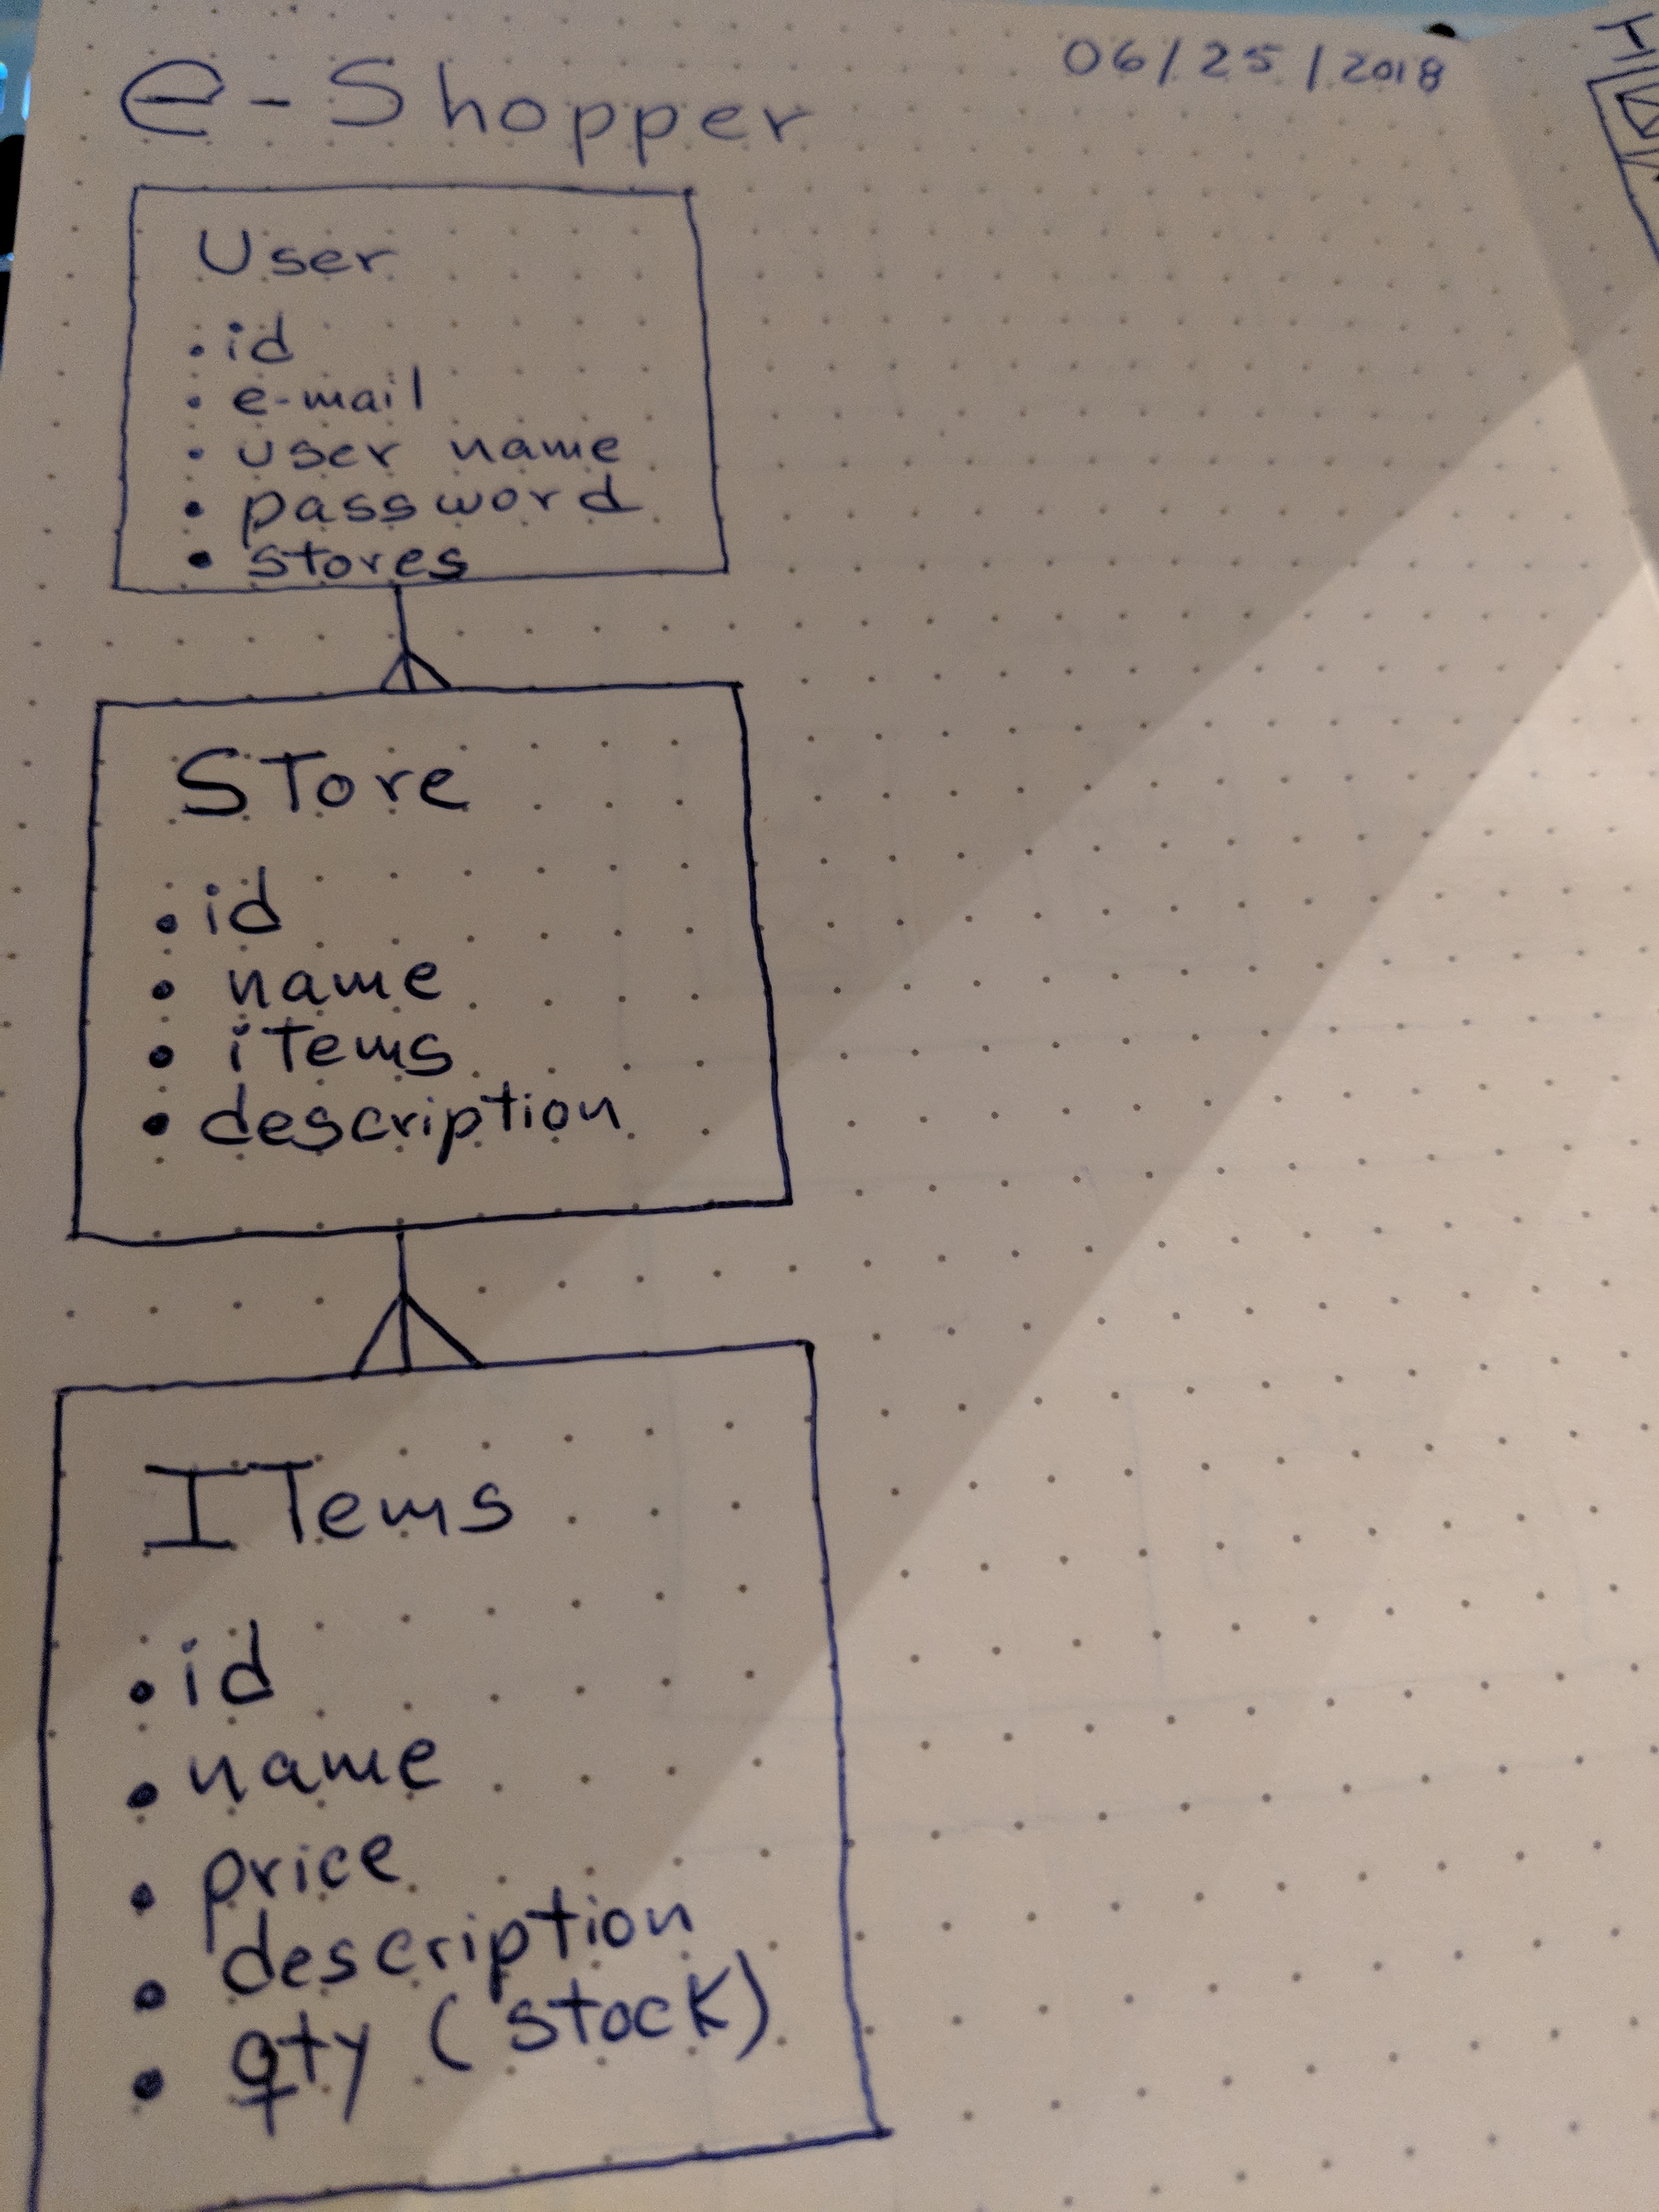 e-Shopper
06/25/2018
User
• id
• e-mail
• user name
• password
• stores
STore
• id
• name
• iTems
• description
ITems
• id
• name
• price
• description
• qty (stock)